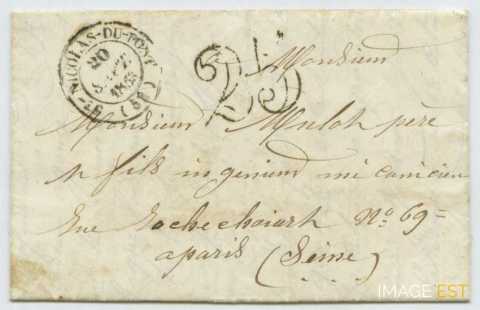 ST NICOLAS-DU-PORT
20
SEPT.
(52)
25
Monsieur
Monsieur Mulot père
& fils ingenieur mécanicien
Rue Rochechoiart No. 69=
a paris (Seine)
IMAGE'EST